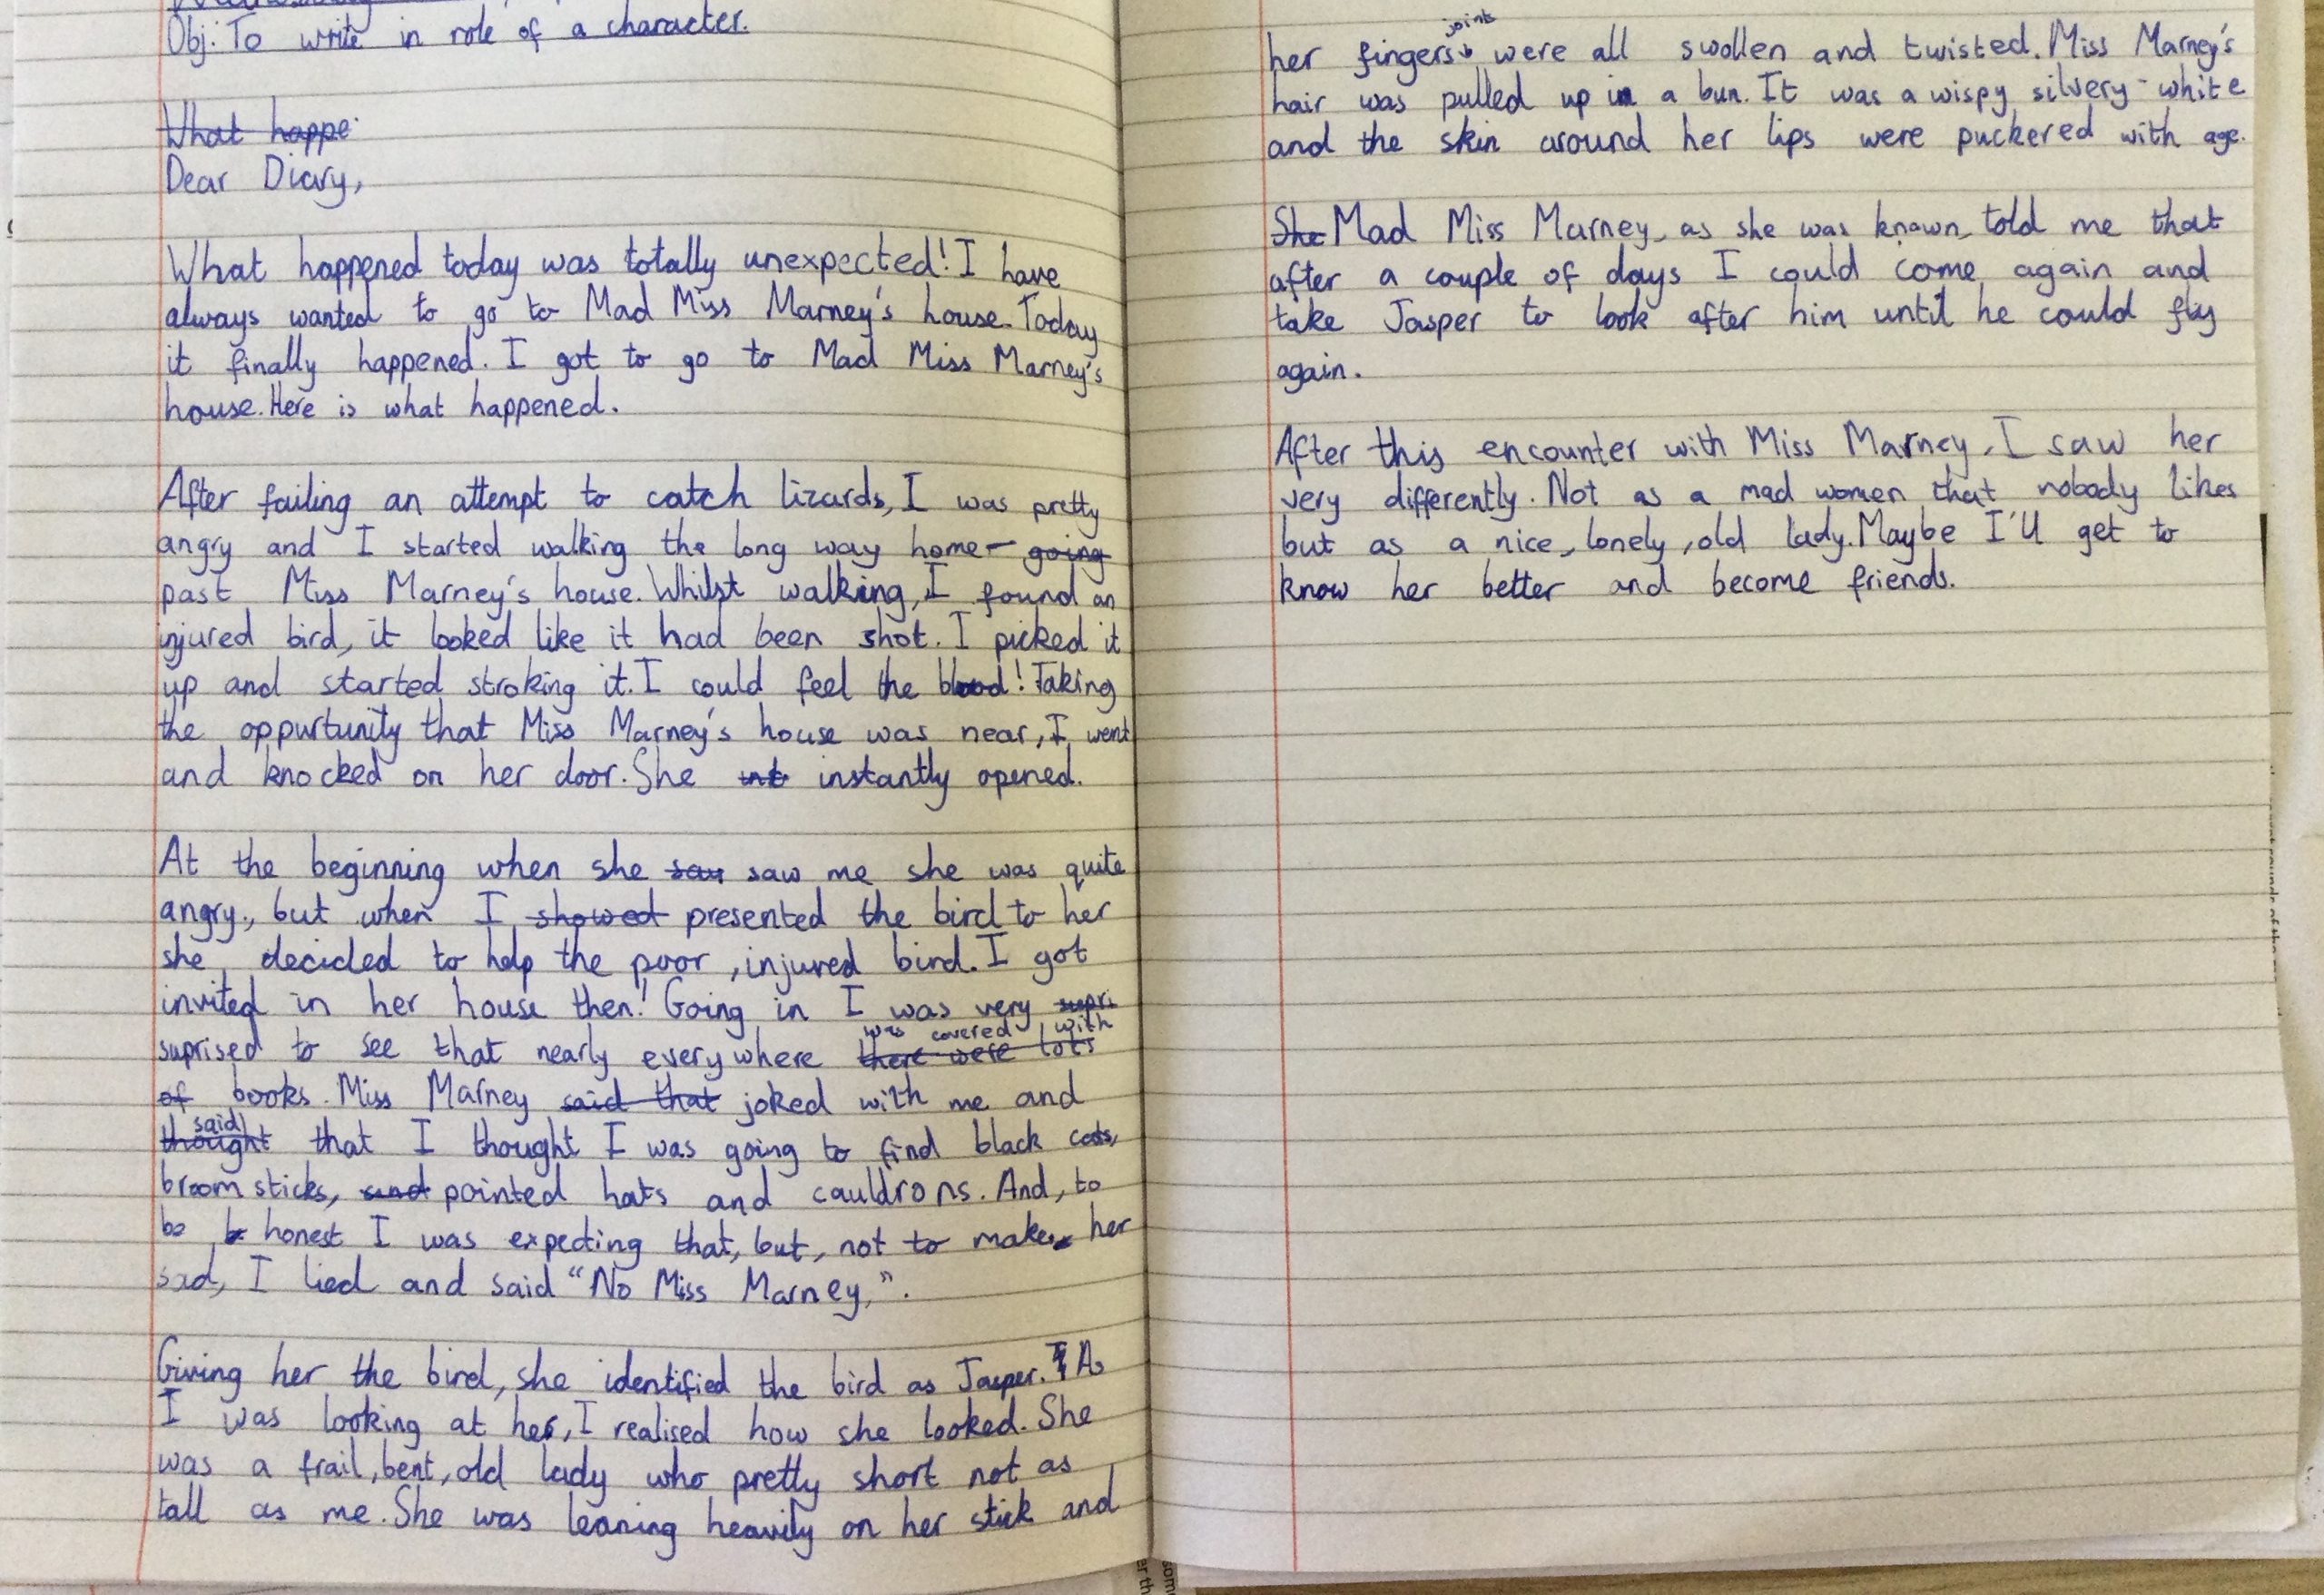 Obj: To write in role of a character.
What happe
Dear Diary,
What happened today was totally unexpected! I have
always wanted to go to Mad Miss Marney's house. Today
it finally happened. I got to go to Mad Miss Marney's
house. Here is what happened.
After failing an attempt to catch lizards, I was pretty
angry and I started walking the long way home- going
past Miss Marney's house. Whilst walking, I found an
injured bird, it looked like it had been shot. I picked it
up and started stroking it. I could feel the blood! Taking
the oppurtunity that Miss Marney's house was near, I went
and knocked on her door. She int instantly opened.
At the beginning when she saw saw me she was quite
angry, but when I showed presented the bird to her
she decided to help the poor, injured bird. I got
invited in her house then! Going in I was very supri
was covered with
suprised to see that nearly everywhere there were lots
of books. Miss Marney said that joked with me and
said
thought that I thought I was going to find black cats,
broomsticks, and pointed hats and cauldrons. And, to
be b honest I was expecting that, but, not to make her
sad, I lied and said "No Miss Marney,".
Giving her the bird, she identified the bird as Jasper. As
I was looking at her, I realised how she looked. She
was a frail, bent, old lady who pretty short not as
tall as me. She was leaning heavily on her stick and
joints
her fingers were all swollen and twisted. Miss Marney's
hair was pulled up in a bun. It was a wispy silvery-white
and the skin around her lips were puckered with age.
She Mad Miss Marney, as she was known, told me that
after a couple of days I could come again and
take Jasper to look after him until he could fly
again.
After this encounter with Miss Marney, I saw her
very differently. Not as a mad women that nobody likes
but as a nice, lonely, old lady. Maybe I'll get to
know her better and become friends.